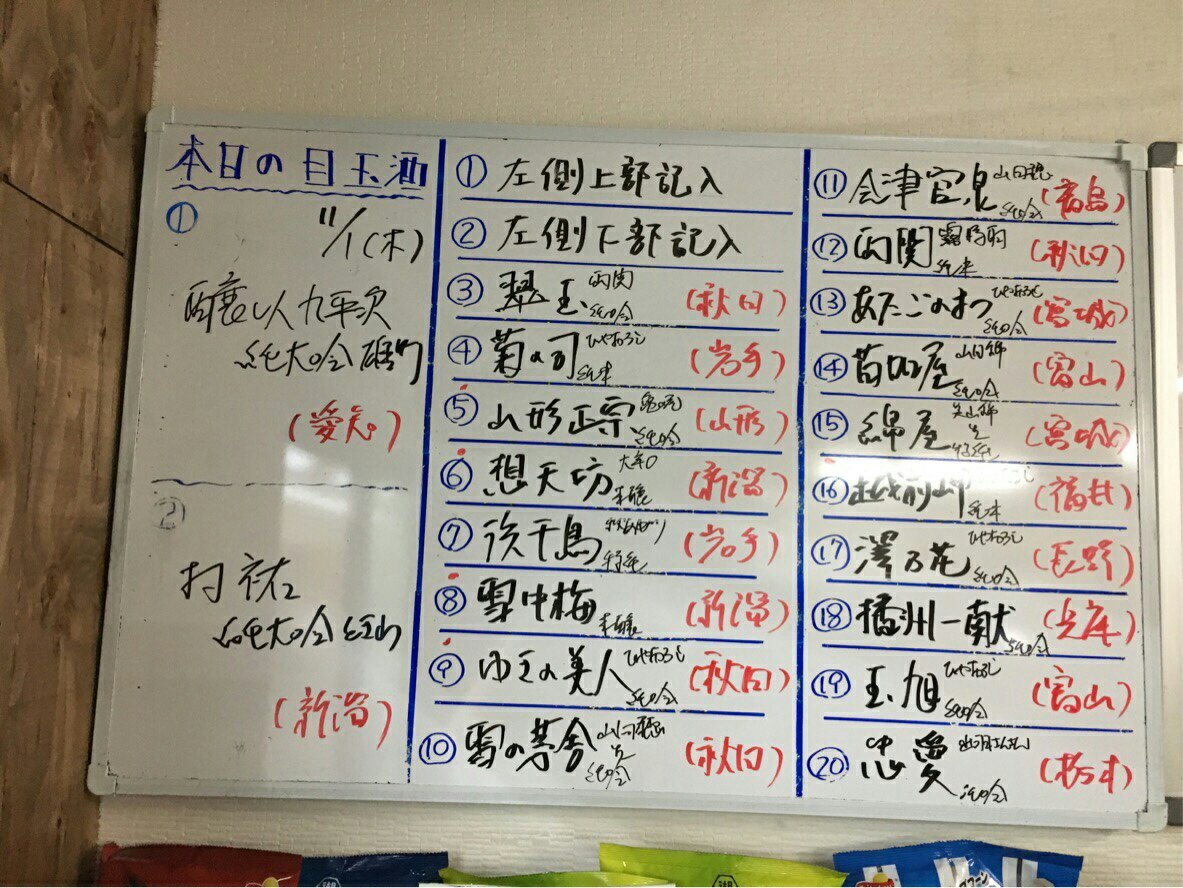 本日の目玉酒
①
11/1(木)
醸し人九平次
純大吟 雄町
(愛知)
②
村祐
純大吟
(新潟)
① 左側上部記入
② 左側下部記入
③ 翠玉 両関 純吟 (秋田)
④ 菊の司 ひやおろし 純米 (岩手)
⑤ 山形正宗 純吟 (山形)
⑥ 想天坊 大辛口 本醸 (新潟)
⑦ 浜千鳥 特純 (岩手)
⑧ 雪中梅 本醸 (新潟)
⑨ ゆきの美人 ひやおろし 純吟 (秋田)
⑩ 雪の茅舎 山田穂 生 純吟 (秋田)
⑪ 会津宮泉 山田穂 純吟 (福島)
⑫ 両関 純米 (秋田)
⑬ あたごのまつ ひやおろし 純吟 (宮城)
⑭ 苗加屋 山田錦 純吟 (富山)
⑮ 綿屋 美山錦 生 特純 (宮城)
⑯ 越前岬 純米 (福井)
⑰ 澤乃花 ひやおろし 純吟 (長野)
⑱ 播州一献 純吟 (兵庫)
⑲ 玉旭 ひやおろし 純吟 (富山)
⑳ 忠愛 純吟 (栃木)